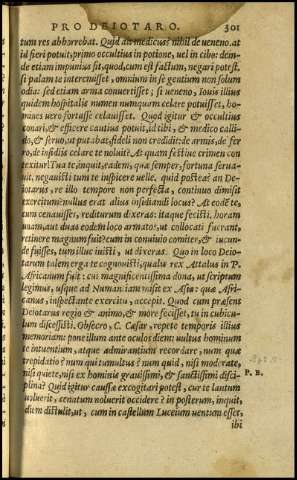 PRO DEIOTARO. 301
tum res abhorrebat. Quid ait medicus? nihil de ueneno. at
id fieri potuit: primo occultius in potione, uel in cibo: dein-
de etiam impunius fit, quod, cum est factum, negari potest.
si palam te interemisset, omnium in se gentium non solum
odia: sed etiam arma conuertisset; si ueneno, Iouis illius
quidem hospitalis numen numquam celare potuisset, ho-
mines uero fortasse celauisset. Quod igitur & occultius
conari, & efficere cautius potuit, id tibi, & medico calli-
do, & seruo, ut putabat, fideli non credidit: de armis, de fer-
ro, de insidiis celare te noluit? At quam festiue crimen con
texitur? Tua te, inquit, eadem, quæ semper, fortuna serua-
uit, negauisti tum te inspicere uelle. quid postea? an De-
iotarus, re illo tempore non perfecta, continuo dimisit
exercitum? nullus erat alius insidiandi locus? At eodem te,
cum cenauisses, rediturum dixeras: itaque fecisti. horam
unam, aut duas eodem loco armatos, ut collocati fuerant,
retinere magnum fuit? cum in conuiuio comiter, & iucun-
de fuisses, tum illuc inisti, ut dixeras. Quo in loco Deio-
tarum talem erga te cognouisti, qualis rex Attalus in P.
Africanum fuit: cui magnificentissima dona, ut scriptum
legimus, usque ad Numantiam misit ex Asia: quæ Afri-
canus, inspectante exercitu, accepit. Quod cum præsens
Deiotarus regio & animo, & more fecisset, tu in cubicu-
lum discessisti. Obsecro, C. Cæsar, repete temporis illius
memoriam: pone illum ante oculos diem: uultus hominum
te intuentium, atque admirantium recordare, num quæ
trepidatio? num qui tumultus? num quid, nisi moderate,
nisi quiete, nisi ex hominis grauissimi, & sanctissimi disci- P. B.
plina? Quid igitur caussæ excogitari potest, cur te lautum
uoluerit, cenatum noluerit occidere? in posterum, inquit,
diem distulit, ut, cum in castellum Luceium uentum esset,
ibi